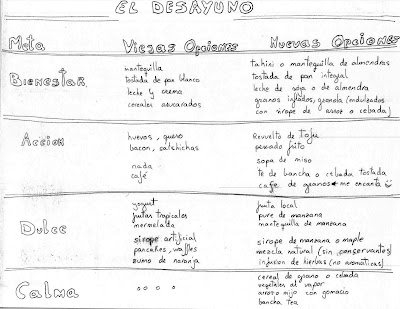 EL DESAYUNO
Meta Viejas Opciones Nuevas Opciones
Bienestar
mantequilla
tostada de pan blanco
leche y crema
cereales azucarados
tahini o mantequilla de almendras
tostada de pan integral
leche de soja o de almendra
granos inflados, granola (endulzados
con sirope de arroz o cebada)
Acción
huevos, queso
bacon, salchichas
nada
café
Revuelto de Tofu
pescado frito
sopa de miso
te de bancha o cebada tostada
cafe de granos me encanta
Dulce
yogurt
frutas tropicales
mermelada
sirope artificial
pancakes, waffles
zumo de naranja
fruta local
pure de manzana
mantequilla de manzana
sirope de manzana o maple
mezcla natural (sin preservantes)
infusion de hierbas (no aromáticas)
Calma
....
cereal de grano o cebada
vegetales al vapor
arroz mijo con gomacio
bancha tea